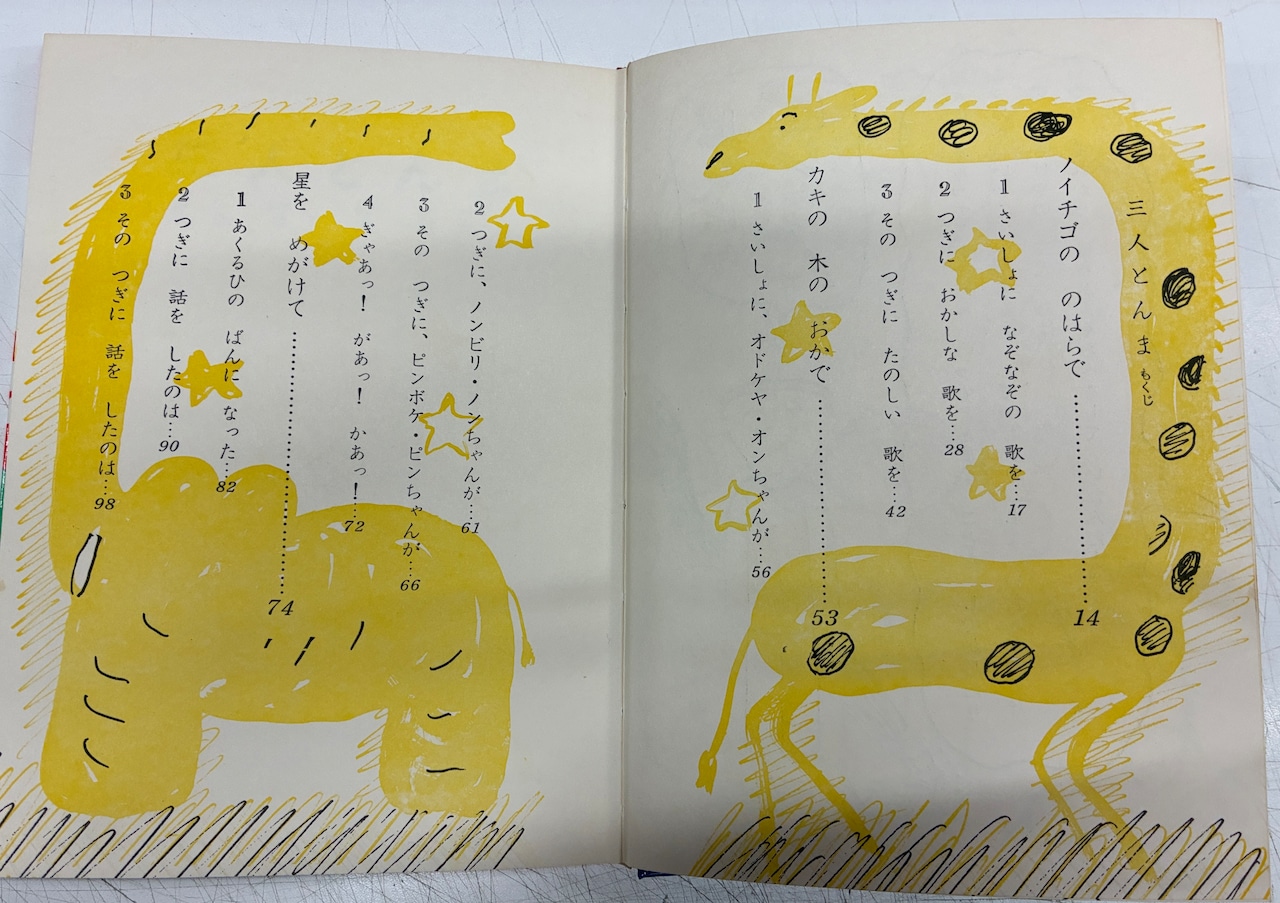 三人とんま もくじ
ノイチゴの のはらで…………………14
1 さいしょに なぞなぞの 歌を…17
2 つぎに おかしな 歌を…28
3 その つぎに たのしい 歌を…42
カキの 木の おかで…………………53
1 さいしょに、オドケヤ・オンちゃんが…56
2 つぎに、ノンビリ・ノンちゃんが…61
3 その つぎに、ピンボケ・ピンちゃんが…66
4 ぎゃあっ! があっ! かあっ!…72
星を めがけて…………………74
1 あくるひの ばんに なった…82
2 つぎに 話を したのは…90
3 その つぎに 話を したのは…98